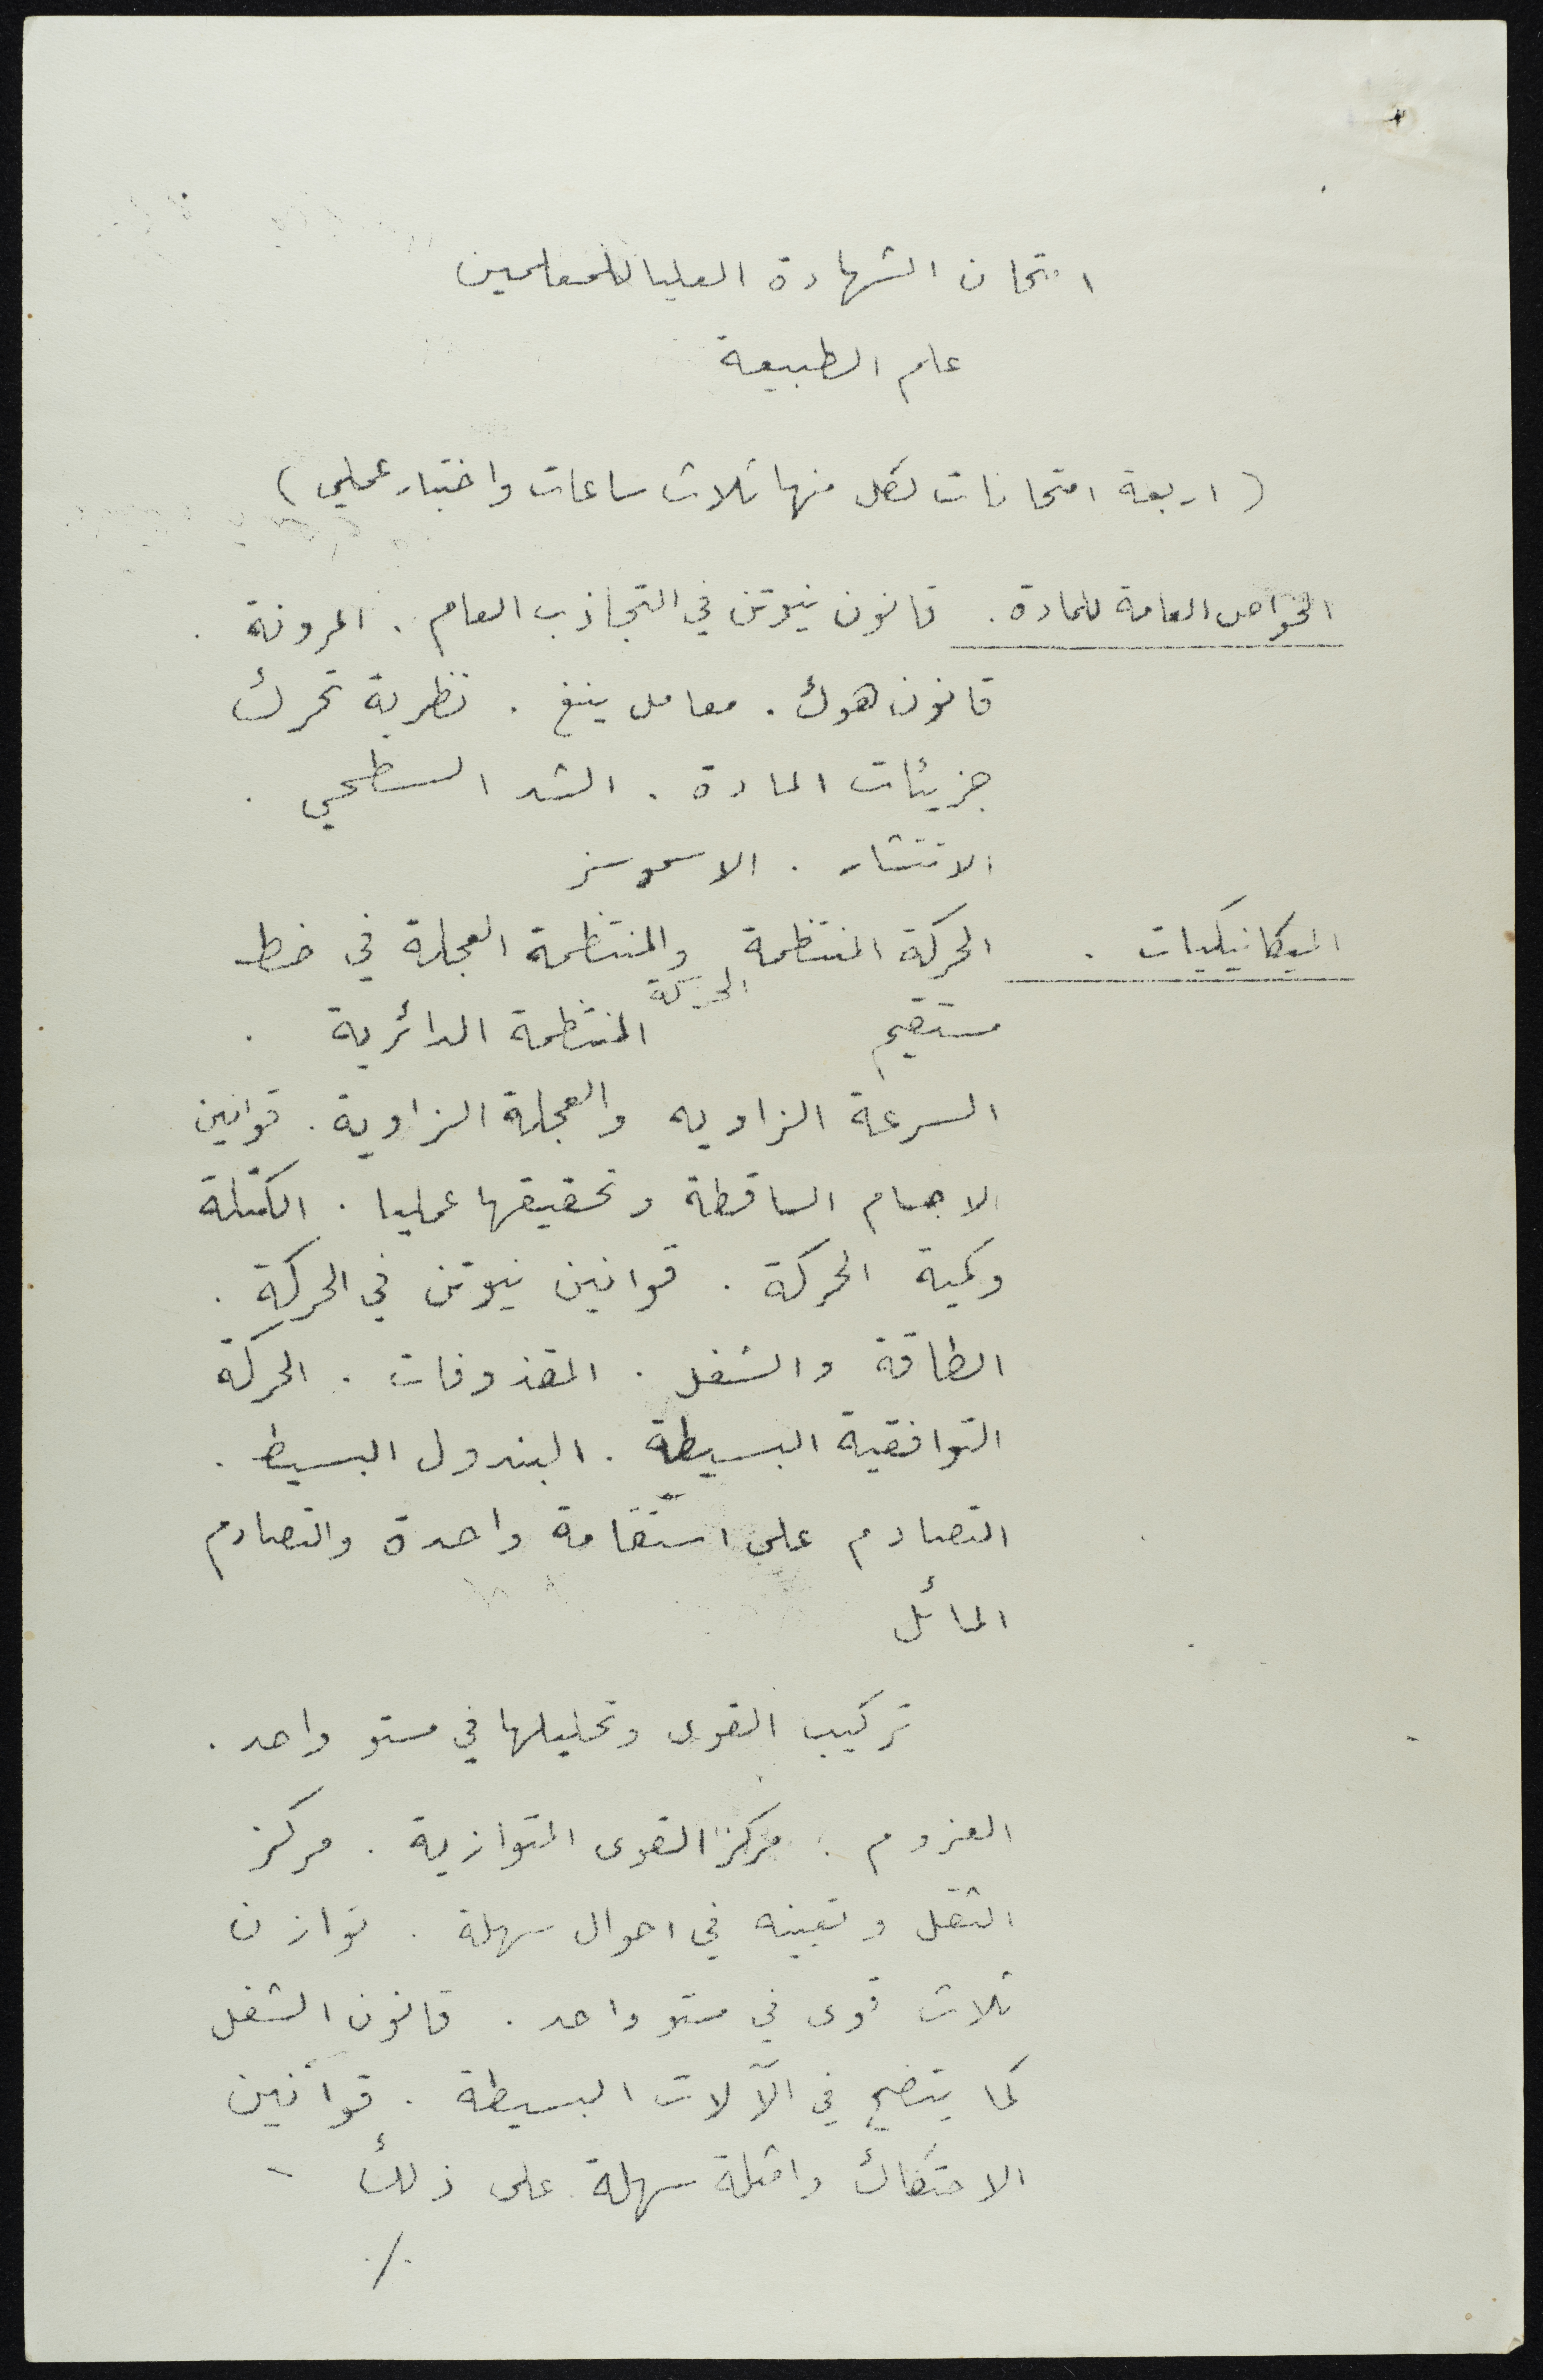 امتحان الشهادة العليا للمعلمين
علم الطبيعة
(اربعة امتحانات لكل منها ثلاث ساعات واختبار عملي)
الخواص العامة للمادة. قانون نيوتن في التجاذب العام. المرونة.
قانون هوك. معامل ينغ. نظرية تحرك
جزيئات المادة. الشد السطحي.
الانتشار. الاسموسز
الميكانيكيات. الحركة المنتظمة والمنتظمة العجلة في خط
مستقيم الحركة المنتظمة الدائرية.
السرعة الزاويه والعجلة الزاوية. قوانين
الاجسام الساقطة وتحقيقها عمليا. الكتلة
وكمية الحركة. قوانين نيوتن في الحركة.
الطاقة والشغل. المقذوفات. الحركة
التوافقية البسيطة. البندول البسيط.
التصادم على استقامة واحدة والتصادم
المائل
تركيب القوى وتحليلها في مستو واحد.
العزوم. مركز القوى المتوازية. مركز
الثقل وتعينه في احوال سهلة. توازن
ثلاث قوى في مستو واحد. قانون الشغل
كما يتضح في الآلات البسيطة. قوانين
الاحتكاك وامثلة سهلة على ذلك -
./.